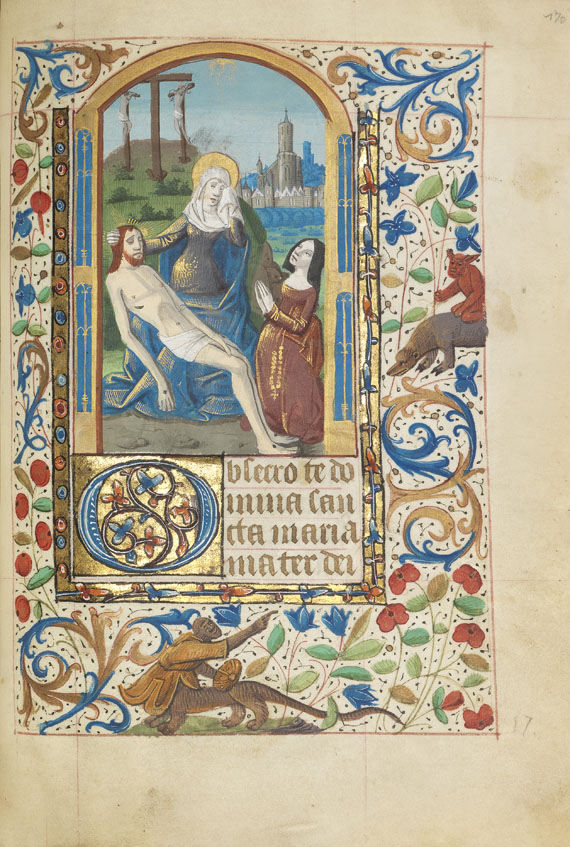 170
Obsecro te do
mina san
cta maria
mater dei
57.